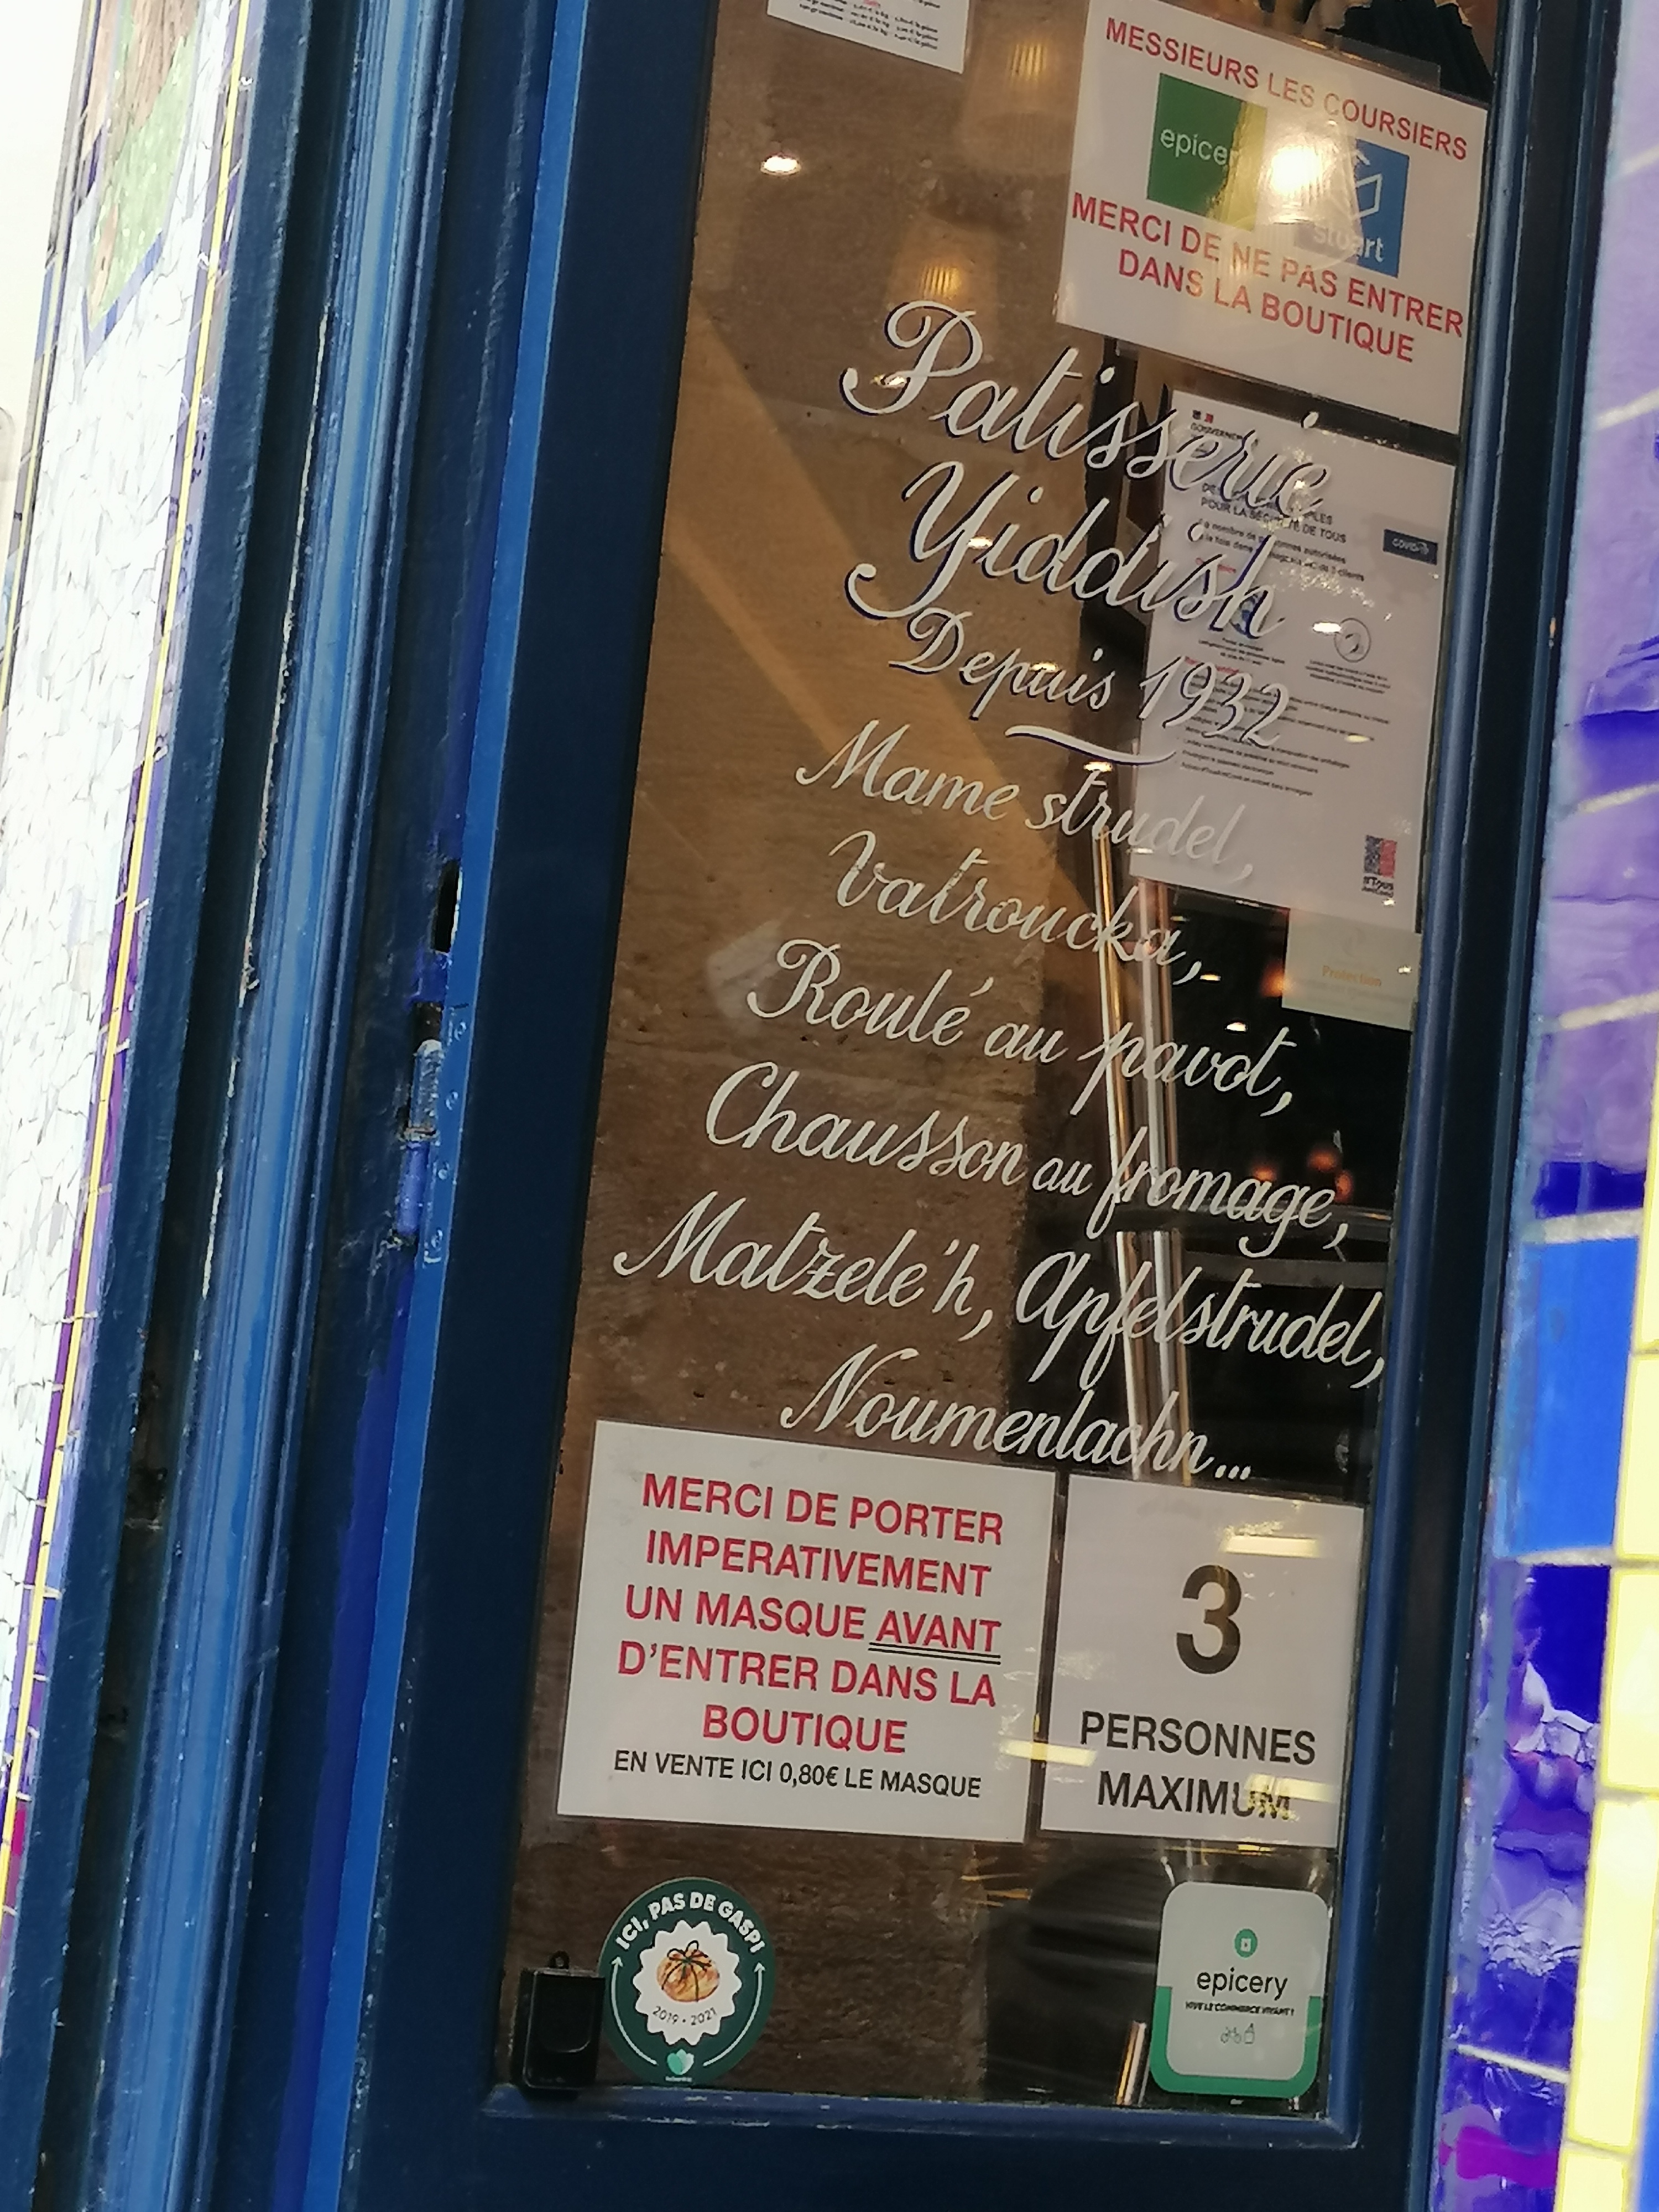 MESSIEURS LES COURSIERS
epicery
stuart
MERCI DE NE PAS ENTRER
DANS LA BOUTIQUE
Patisserie
Yiddish
Depuis 1932
Mame strudel,
Vatroucka,
Roulé au pavot,
Chausson au fromage,
Matzele'h, Apfelstrudel,
Noumenlachn...
GOUVERNEMENT
POUR LA SÉCURITÉ DE TOUS
COVID-19
Protection
MERCI DE PORTER
IMPERATIVEMENT
UN MASQUE AVANT
D'ENTRER DANS LA
BOUTIQUE
EN VENTE ICI 0,80€ LE MASQUE
3
PERSONNES
MAXIMUM
ICI, PAS DE GASPI
2019 • 2021
epicery
VIVE LE COMMERCE VIVANT !